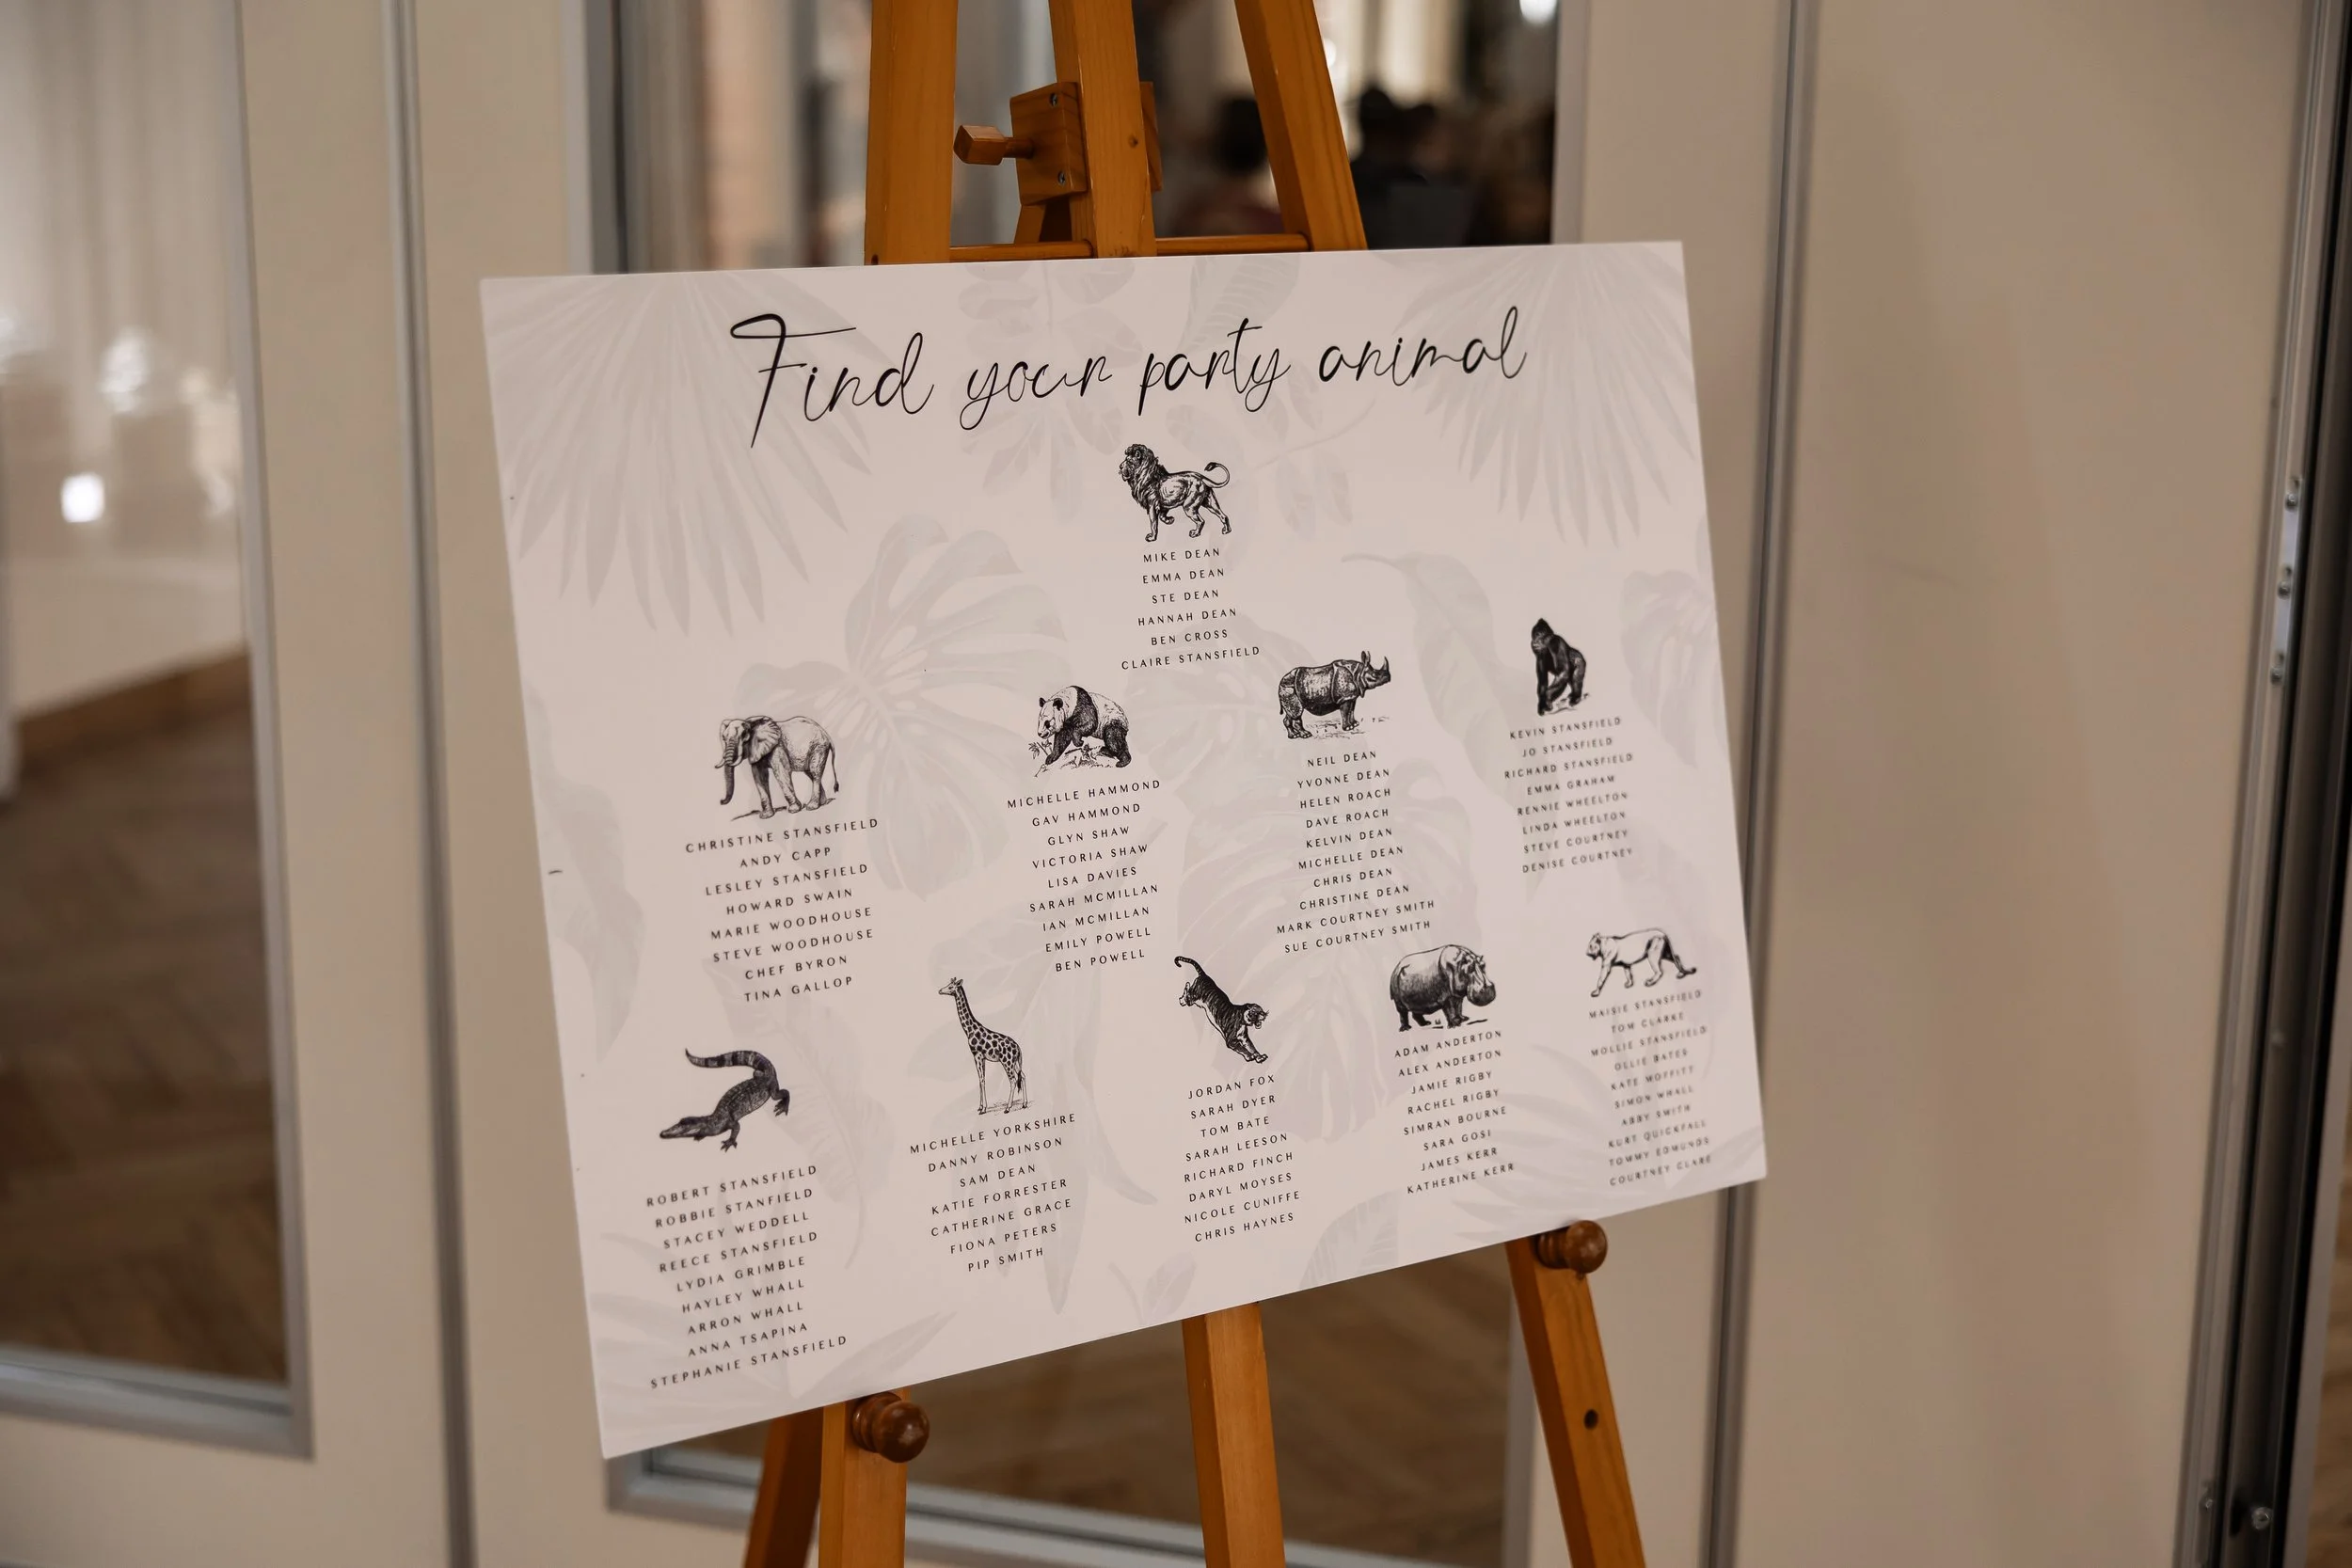 Find your party animal
MIKE DEAN
EMMA DEAN
STE DEAN
HANNAH DEAN
BEN CROSS
CLAIRE STANSFIELD
CHRISTINE STANSFIELD
ANDY CAPP
LESLEY STANSFIELD
HOWARD SWAIN
MARIE WOODHOUSE
STEVE WOODHOUSE
CHEF BYRON
TINA GALLOP
MICHELLE HAMMOND
GAV HAMMOND
GLYN SHAW
VICTORIA SHAW
LISA DAVIES
SARAH MCMILLAN
IAN MCMILLAN
EMILY POWELL
BEN POWELL
NEIL DEAN
YVONNE DEAN
HELEN ROACH
DAVE ROACH
KELVIN DEAN
MICHELLE DEAN
CHRIS DEAN
CHRISTINE DEAN
MARK COURTNEY SMITH
SUE COURTNEY SMITH
KEVIN STANSFIELD
JO STANSFIELD
RICHARD STANSFIELD
EMMA GRAHAM
RENNIE WHEELTON
LINDA WHEELTON
STEVE COURTNEY
DENISE COURTNEY
ROBERT STANSFIELD
ROBBIE STANFIELD
STACEY WEDDELL
REECE STANSFIELD
LYDIA GRIMBLE
HAYLEY WHALL
ARRON WHALL
ANNA TSAPINA
STEPHANIE STANSFIELD
MICHELLE YORKSHIRE
DANNY ROBINSON
SAM DEAN
KATIE FORRESTER
CATHERINE GRACE
FIONA PETERS
PIP SMITH
JORDAN FOX
SARAH DYER
TOM BATE
SARAH LEESON
RICHARD FINCH
DARYL MOYSES
NICOLE CUNIFFE
CHRIS HAYNES
ADAM ANDERTON
ALEX ANDERTON
JAMIE RIGBY
RACHEL RIGBY
SIMRAN BOURNE
SARA GOSI
JAMES KERR
KATHERINE KERR
MAISIE STANSFIELD
TOM CLARKE
MOLLIE STANSFIELD
OLLIE BATES
KATE MOFFITT
SIMON WHALL
ABBY SMITH
KURT QUICKFALL
TOMMY EDMUNDS
COURTNEY CLARE